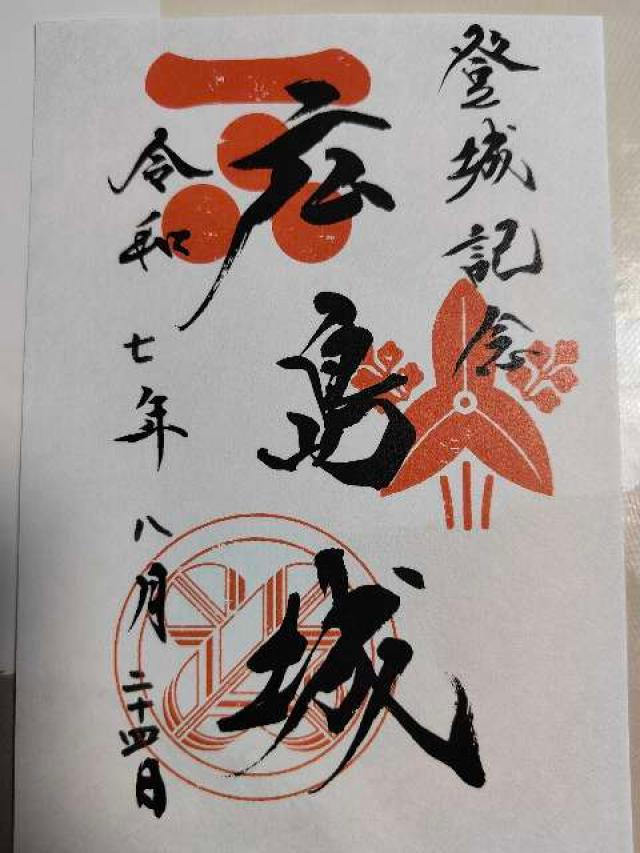 登城記念
広島城
令和七年八月二十四日